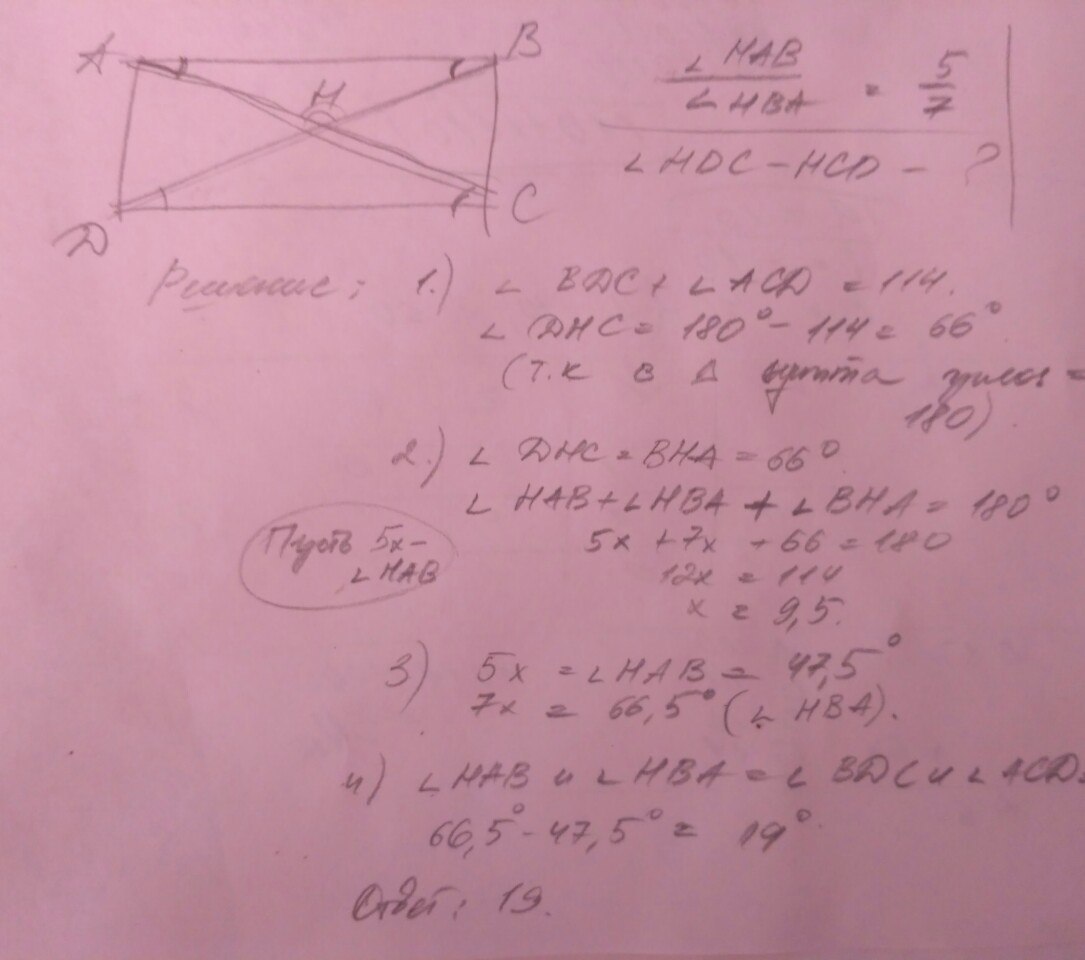 A B
H
D C
∠HAB / ∠HBA = 5/7
∠HDC - HCD - ?
Решение: 1.) ∠ BDC + ∠ACD = 114.
∠ DHC = 180° - 114 = 66°
(т.к в Δ сумма углов =
180).
2.) ∠ DHC = BHA = 66°
∠ HAB + ∠HBA + ∠BHA = 180°
Пусть 5x -
∠HAB
5x + 7x + 66 = 180
12x = 114
x = 9,5.
3) 5x = ∠HAB = 47,5°
7x = 66,5° (∠ HBA).
4) ∠HAB и ∠HBA = ∠ BDC и ∠ACD =
66,5° - 47,5° = 19°
Ответ: 19.